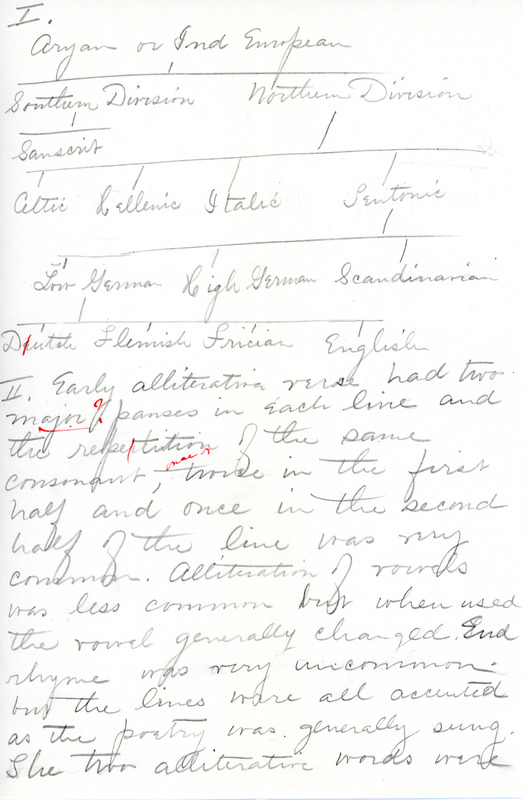 I.
Aryan or Ind European
Southern Division Northern Division
Sanscrit
Celtic Hellenic Italic Teutonic
Low German High German Scandinavian
Flemish Frician English
II. Early alliterative verse had two
major? pauses in each line and
the repetition of the same
consonant, once or twice in the first
half and once in the second
half of the line was very
common. Alliteration of vowels
was less common but when used
the vowel generally changed. End
rhyme was very uncommon.
but the lines were all accented
as the poetry was generally sung.
The two alliterative words were